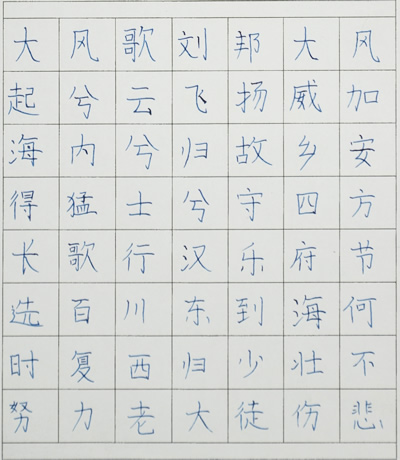 大风歌刘邦大风
起兮云飞扬威加
海内兮归故乡安
得猛士兮守四方
长歌行汉乐府节
选百川东到海何
时复西归少壮不
努力老大徒伤悲